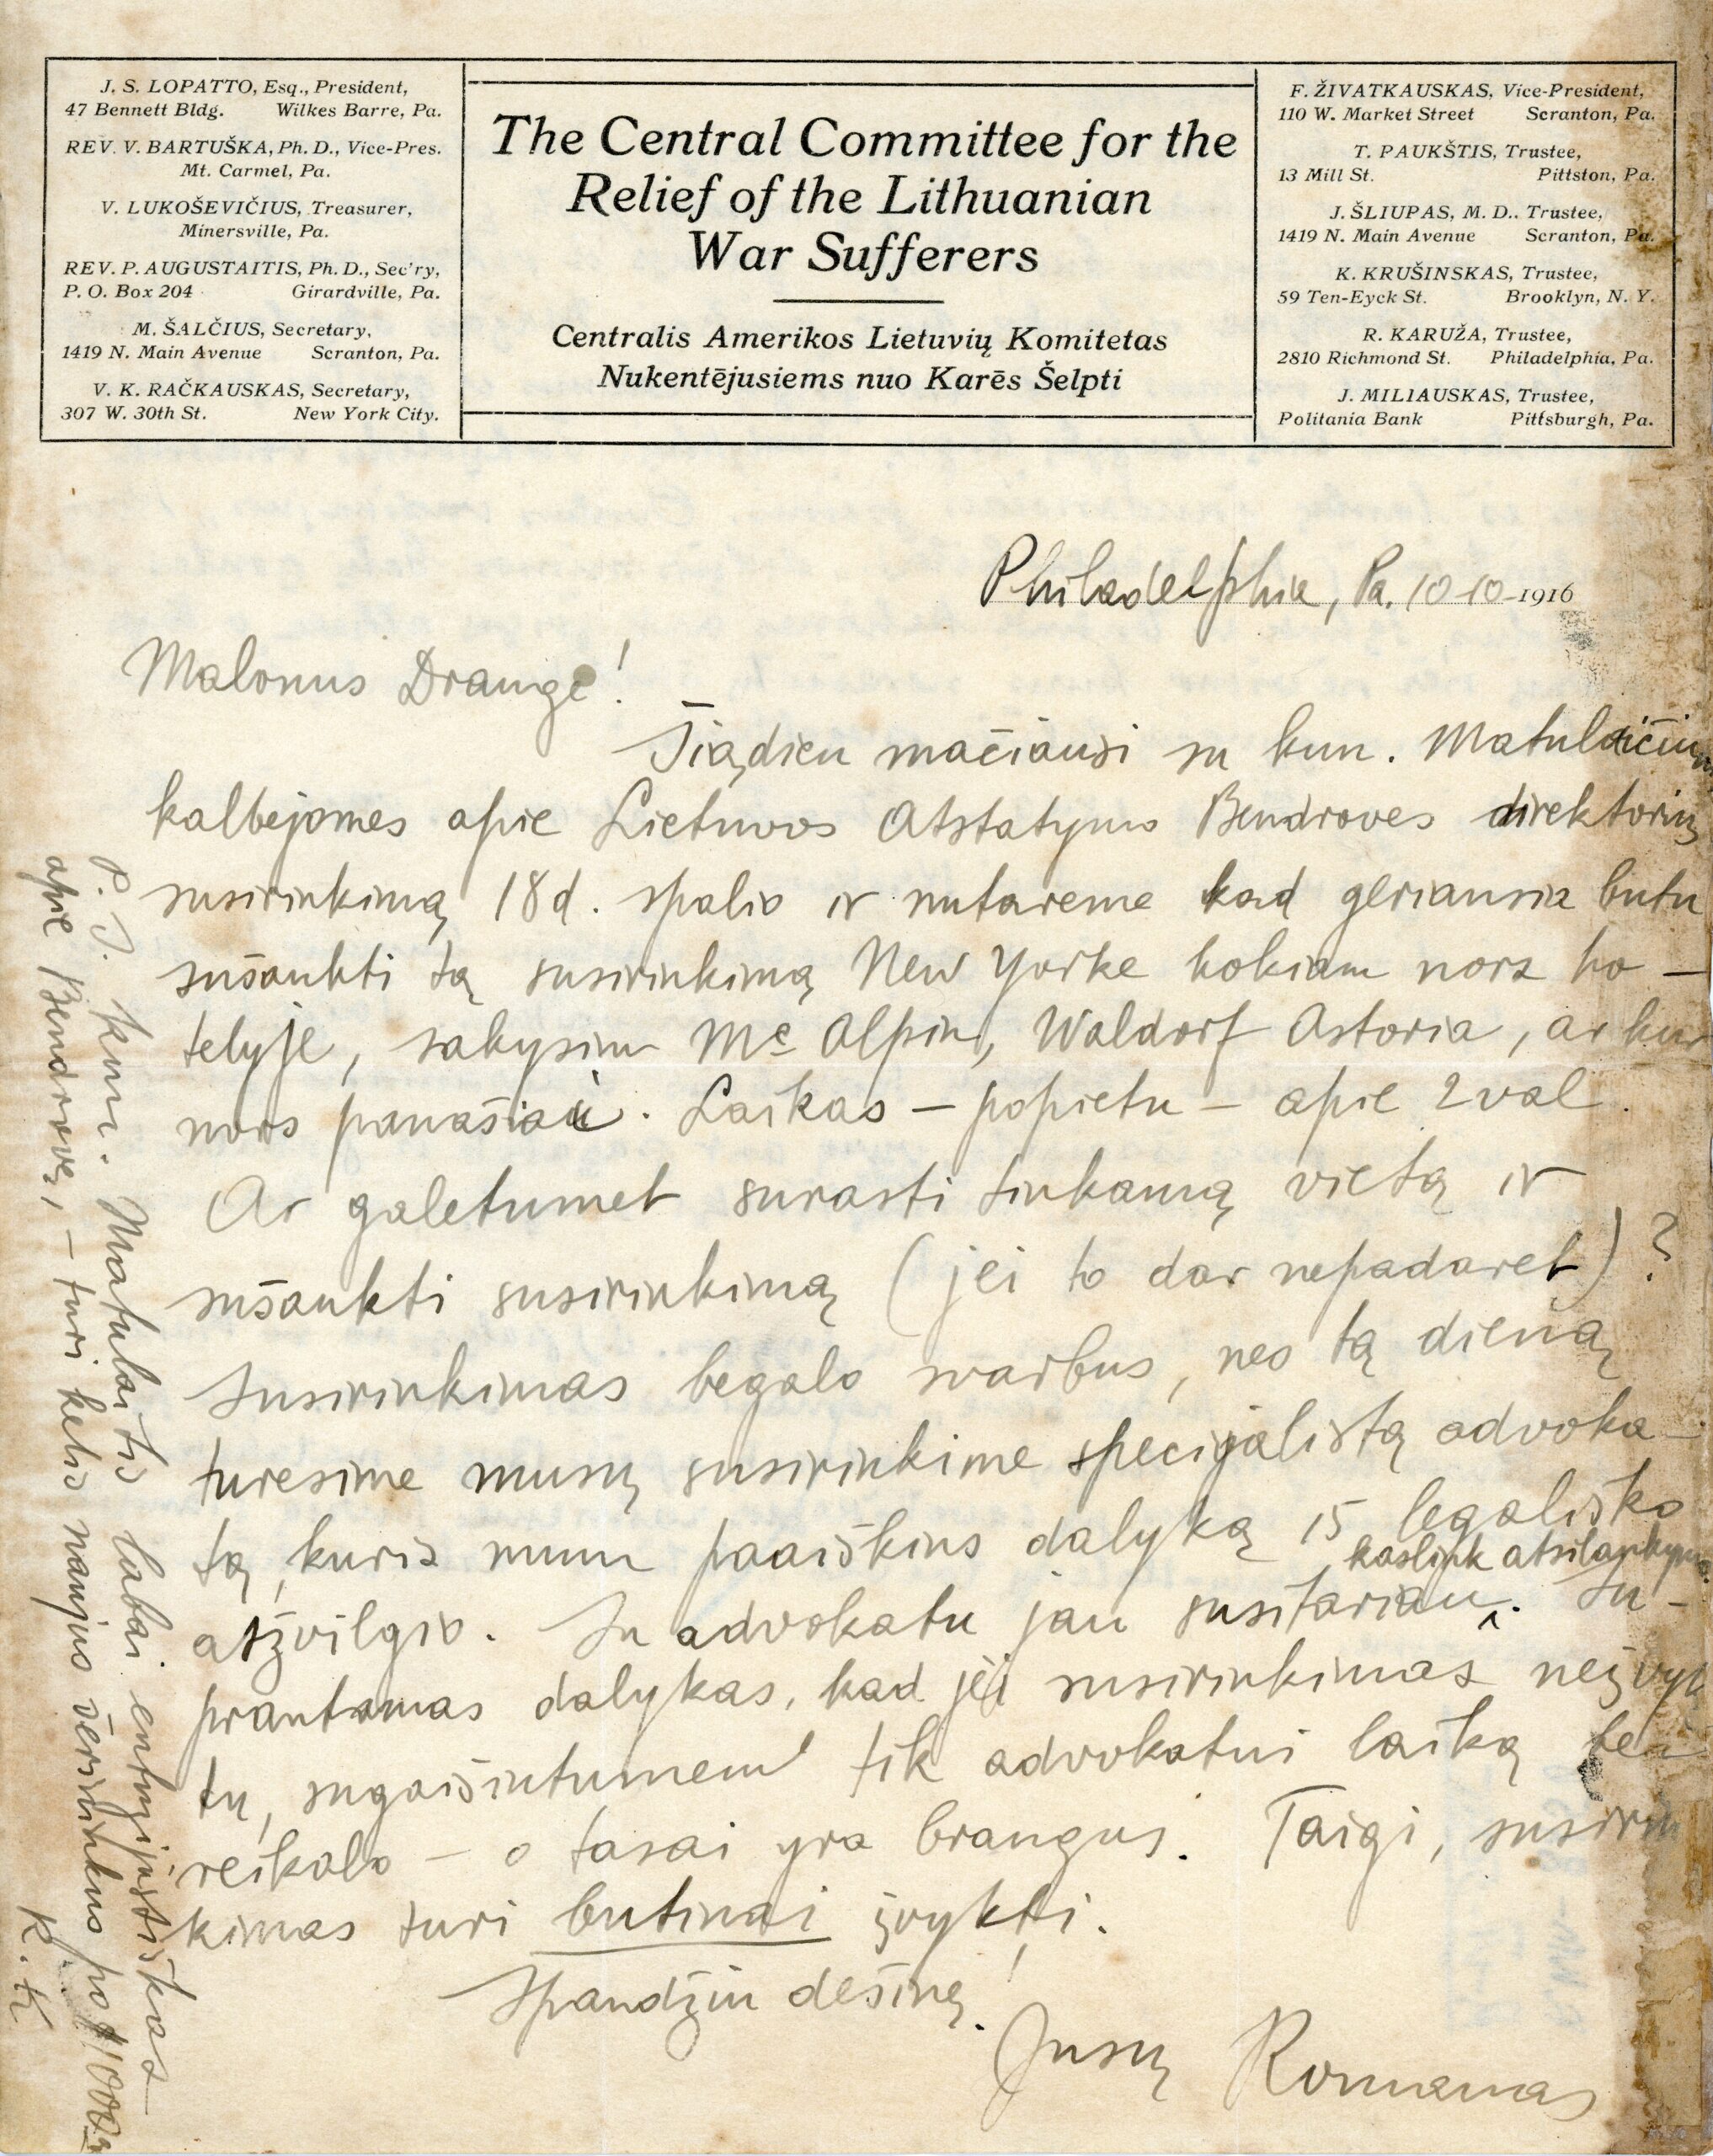 J. S. LOPATTO, Esq., President,
47 Bennett Bldg. Wilkes Barre, Pa.
REV. V. BARTUŠKA, Ph. D., Vice-Pres.
Mt. Carmel, Pa.
V. LUKOŠEVIČIUS, Treasurer,
Minersville, Pa.
REV. P. AUGUSTAITIS, Ph. D., Sec'ry,
P. O. Box 204 Girardville, Pa.
M. ŠALČIUS, Secretary,
1419 N. Main Avenue Scranton, Pa.
V. K. RAČKAUSKAS, Secretary,
307 W. 30th St. New York City.
The Central Committee for the
Relief of the Lithuanian
War Sufferers
Centralis Amerikos Lietuvių Komitetas
Nukentējusiems nuo Karēs Šelpti
F. ŽIVATKAUSKAS, Vice-President,
110 W. Market Street Scranton, Pa.
T. PAUKŠTIS, Trustee,
13 Mill St. Pittston, Pa.
J. ŠLIUPAS, M. D.. Trustee,
1419 N. Main Avenue Scranton, Pa.
K. KRUŠINSKAS, Trustee,
59 Ten-Eyck St. Brooklyn, N. Y.
R. KARUŽA, Trustee,
2810 Richmond St. Philadelphia, Pa.
J. MILIAUSKAS, Trustee,
Politania Bank Pittsburgh, Pa.
Philadelphia, Pa. 10-10-1916
Malonus Drauge!
Šiądien mačiausi su kun.
kalbejomes apie Lietuvos Atstatymo Bendroves direktorių
susirinkimą 18 d. spalio ir nutareme kad geriausia butu
sušaukti tą susirinkimą New Yorke kokiam nors ho-
telyje, sakysim Mc Alpin, Waldorf Astoria, ar kur
nors panašiai. Laikas – popietu – apie 2 val.
Ar galetumet surasti tinkamą vietą ir
sušaukti susirinkimą (jei to dar nepadaret)?
Susirinkimas begalo svarbus, nes tą dieną
turesime musų susirinkime specijalistą advoka-
tą, kuris mum paaiškins dalyką iš legališko
atžvilgio. Su advokatu jau susitariau kaslink atsilankymo. Su-
prantamas dalykas, kad jei susirinkimas neįvyk
tų, sugaišintumem tik advokatui laiką bei
reikalo – o tasai yra brangus. Taigi, susirin
kimas turi butinai įvykti.
Spaudžiu dešinę!
Jusų Romanas
P. S. Kun. Matulaitis labai entuzijastiškas
apie Bendrovę, – turi kelis naujus šėrininkus po $1000
R. K.